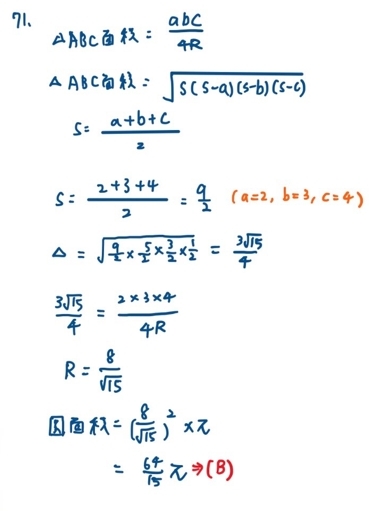 71.
△ABC面積 = abc/4R
△ABC面積 = √s(s-a)(s-b)(s-c)
s = a+b+c/2
s = 2+3+4/2 = 9/2 (a=2, b=3, c=4)
△ = √9/2×5/2×3/2×1/2 = 3√15/4
3√15/4 = 2×3×4/4R
R = 8/√15
圓面積 = (8/√15)² ×π
= 64/15 π ⇒(B)